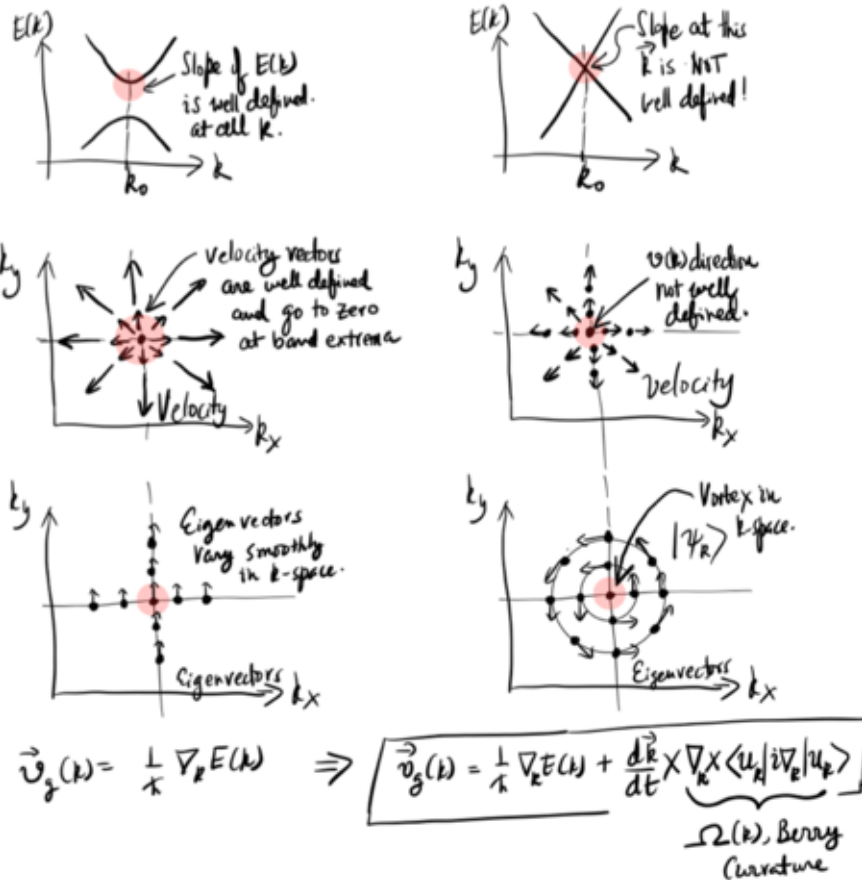 E(k)
Slope if E(k)
is well defined.
at all k.
k
k₀
E(k)
Slope at this
k⃗ is NOT
well defined!
k
k₀
ky
velocity vectors
are well defined
and go to zero
at band extrema
Velocity
kx
ky
v(k) direction
not well
defined.
velocity
kx
ky
Eigenvectors
vary smoothly
in k-space.
Eigenvectors
kx
ky
Vortex in
k-space.
|ψₖ⟩
Eigenvectors
kx
v⃗g(k) = 1/ħ ∇ₖE(k) ⇒ v⃗g(k) = 1/ħ ∇ₖE(k) + dk⃗/dt × ∇ₖ × ⟨uₖ|i∇ₖ|uₖ⟩
Ω(k), Berry
Curvature